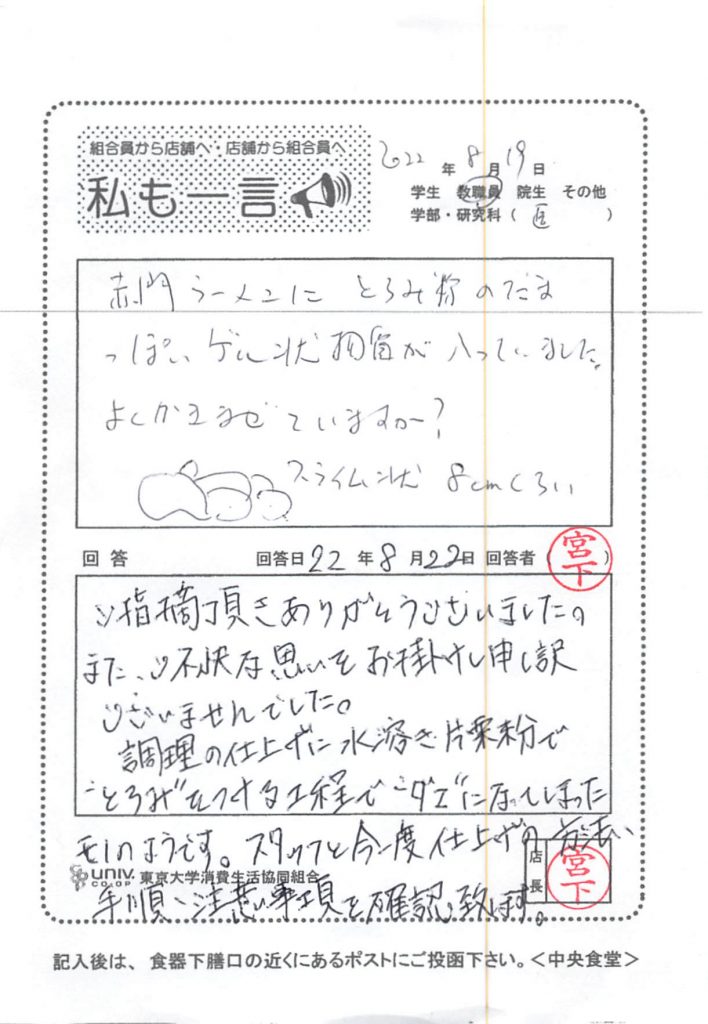 組合員から店舗へ・店舗から組合員へ
私も一言
2022年8月19日
学生 教職員 院生 その他
学部・研究科(医)
赤門ラーメンに とろみ粉のだま
っぽい ゲル状物質が 入っていました。
よくかきまぜていますかー?
スライム状 8cmくらい
回答 回答日22年8月22日 回答者(宮下)
ご指摘頂きありがとうございました。
また、ご不快な思いをお掛けし申し訳
ございませんでした。
調理の仕上げに水溶き片栗粉で
"とろみ"をつける工程で"ダマ"になってしまった
もののようです。スタッフと今一度仕上げの方法、
手順、注意事項を確認致します。
UNIV. CO-OP 東京大学消費生活協同組合
店長 宮下
記入後は、食器下膳口の近くにあるポストにご投函下さい。<中央食堂>